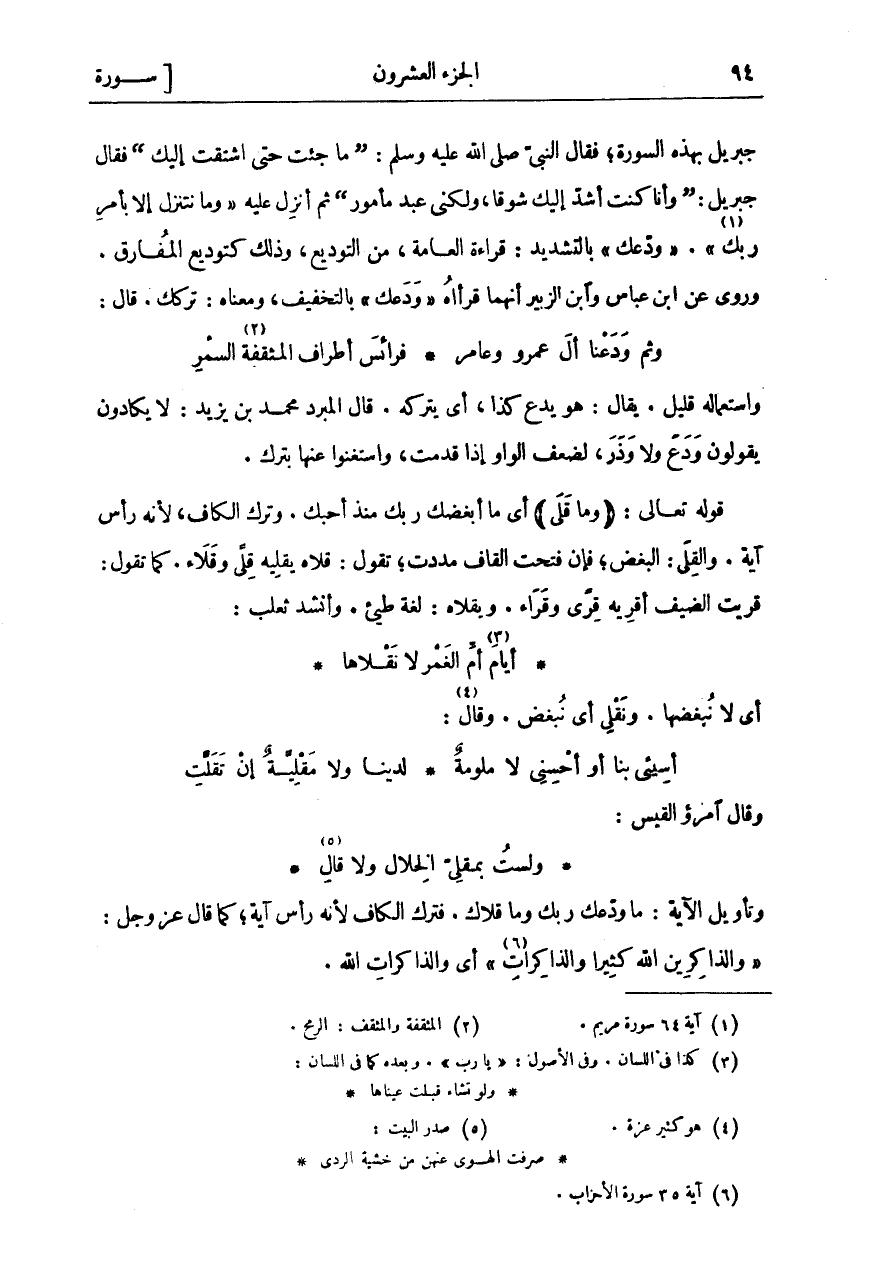 ٩٤ الجزء العشرون [ ســـورة
جبريل بهذه السورة؛ فقال النبيّ صلى الله عليه وسلم : ” ما جئت حتى اشتقت إليك “ فقال
جبريل : ” وأنا كنت أشدّ إليك شوقا، ولكنى عبد مأمور “ ثم أنزِل عليه « وما نتنزل إلا بأمرِ
ربك » (١) . « ودّعك » بالتشديد : قراءة العـامة ، من التوديع، وذلك كتوديع المُفـارق .
وروى عن ابن عباس وآبن الزبير أنهما قرأاهُ « وَدَعك » بالتخفيف، ومعناه : تركك . قال :
وثم وَدَعْنا ألَ عمرو وعامر * فرائسَ أطراف المثقفة (٢) السمْرِ
واستعماله قليل . يقال : هو يدع كذا ، أى يتركه . قال المبرد محمـد بن يزيد : لا يكادون
يقولون وَدَعَ ولا وَذَرَ، لضعف الواو إذا قدمت، واستغنوا عنها بترك .
قوله تعـالى : ﴿ وما قَلَى ﴾ أى ما أبغضك ربك منذ أحبك . وترك الكاف، لأنه رأس
آية . والقِلَى : البغض؛ فإن فتحت القاف مددت؛ تقول : قلاه يقليه قِلًى وقَلَاء . كما تقول :
قريت الضيف أقرِيه قِرًى وقَرَاء . ويقلاه : لغة طيئ . وأنشد ثعلب :
* أيامَ (٣) أمِّ الغَمْر لا نَقْـلاها *
أى لا نُبغضها . ونَقْلِى أى نُبغض . وقال (٤) :
أسِيئِى بنا أو أحْسِنِى لا ملومةٌ * لدينـا ولا مَقْلِيّـةٌ إنْ تَقَلَّتِ
وقال آمرؤ القيس :
* ولستُ بمقلِىّ الخِلال ولا قالِ (٥) *
وتأويل الآية : ما ودّعك ربك وما قلاك . فترك الكاف لأنه رأس آية؛ كما قال عز وجل :
« والذاكرِين الله كثِيرا والذاكِراتِ (٦) » أى والذاكراتِ الله .
(١) آية ٦٤ سورة مريم . (٢) المثقفة والمثقف : الرمح .
(٣) كذا فى اللسان . وفى الأصول : « يا رب » . وبعده كما فى اللسان :
* ولو تشاء قبلت عيناها *
(٤) هو كثير عزة . (٥) صدر البيت :
* صرفت الهـوى عنهن من خشية الردى *
(٦) آية ٣٥ سورة الأحزاب .